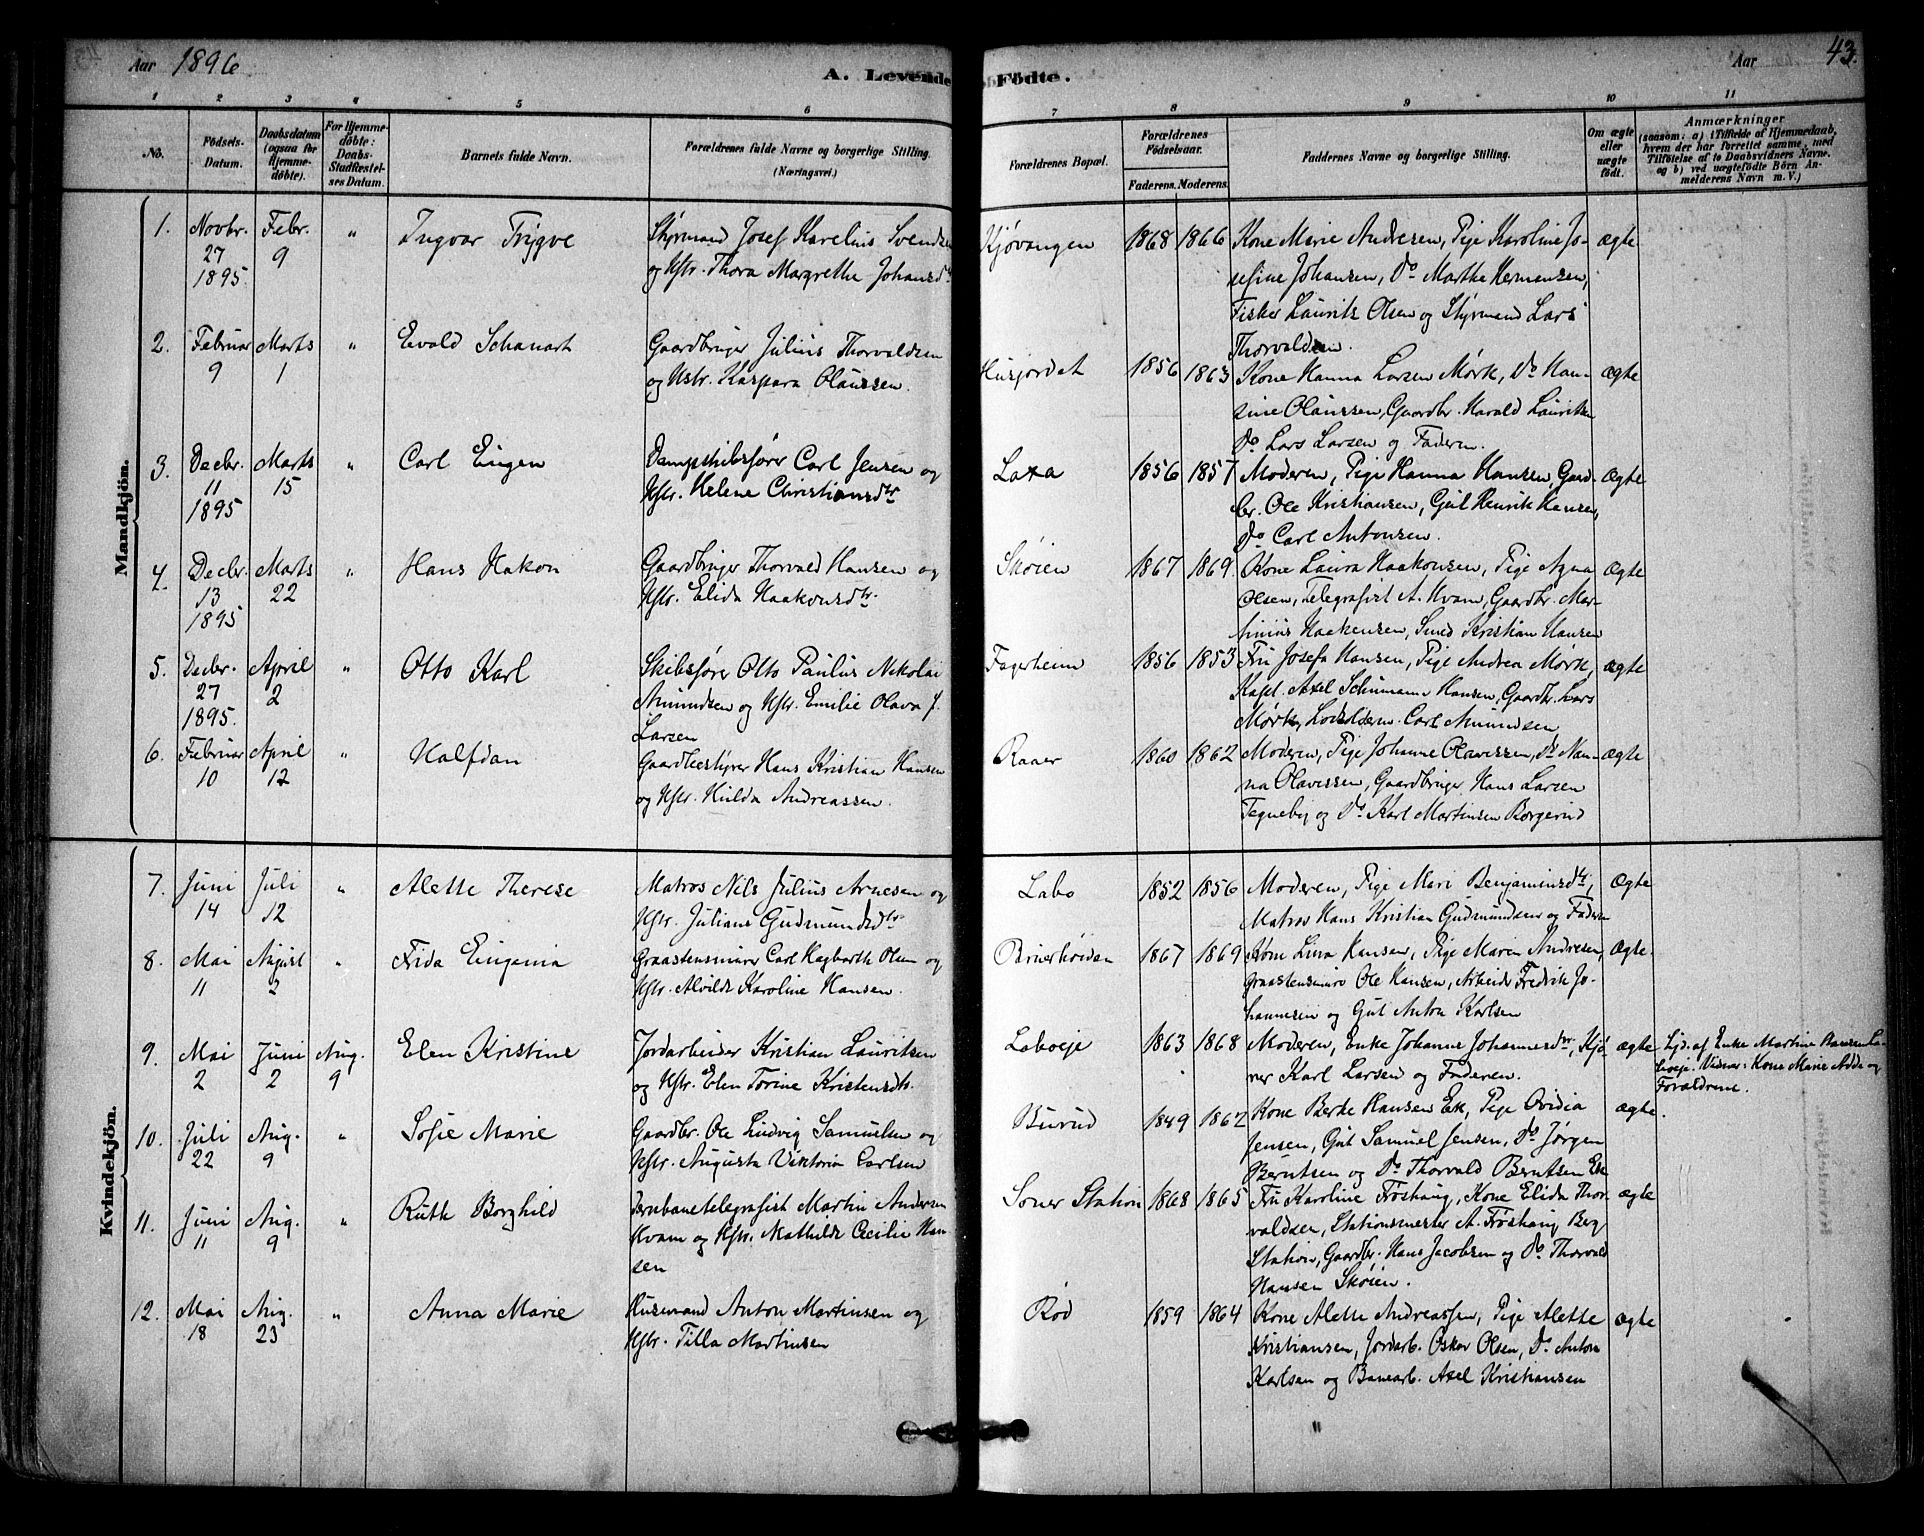 Aar 1896
A. Levende Födte.
Aar
43.
1 2 3 4 5 6 7 8 9 10 11
No.
Födsels-Datum.
Daabsdatum (ogsaa for Hjemme-döbte).
For Hjemme-döbte: Daabs-Stadfæstel-ses Datum.
Barnets fulde Navn.
Forældrenes fulde Navne og borgerlige Stilling. (Næringsvei.)
Forældrenes Bopæl.
Forældrenes Födselsaar.
Faderens. Moderens.
Faddernes Navne og borgerlige Stilling.
Om ægte eller uægte födt.
Anmærkninger
(saasom: a) i Tilfælde af Hjemmedaab, hvem der har forrettet samme, med Tilföielse af to Daabsvidners Navne, og b) ved uægtefödte Börn An-melderens Navn m. V.)
Mandkjön.
1. Novbr. 27 1895. Febr. 9 " Ingvar Trygve
Styrmand Josef Karelius Svendsen
og Hstr. Thora Margrethe Johansdtr
Kjøvangen 1868 1866
Kone Marie Andresen, Pige Karoline Jo-
sefine Johansen, Do Marthe Hermansen,
Fisker Laurits Olsen og Styrmand Lars
Thorvaldsen.
ægte
2. Februar 9 Marts 1 " Evald Schanart
Gaardbruger Julius Thorvaldsen
og Hstr. Kaspara Olaussen.
Husjordet 1856 1863
Kone Hanna Larsen Mørk, Do Han-
sine Olaussen, Gaardbr. Harald Lauritsen
Do Lars Larsen og Faderen.
ægte
3. Decbr. 11 1895 Marts 15 " Carl Eugen
Dampskibsfører Carl Jensen og
Hstr. Helene Christiansdtr
Laxa 1856 1857
Moderen, Pige Hanna Hansen, Gaard-
br. Ole Kristiansen, Gut Henrik Hansen,
Do Carl Antonsen.
ægte
4. Decbr. 13 1895 Marts 22 " Hans Hakon
Gaardbruger Thorvald Hansen og
Hstr. Elida Haakonsdtr.
Skøien 1867 1869
Kone Laura Haakonsen, Pige Agna
Olsen, Telegrafist A. Kvam, Gaardbr. Mar-
tinius Haakensen, Smed Kristian Hansen
ægte
5. Decbr. 27 1895. April 2 " Otto Karl
Skibsfører Otto Paulus Nikolai
Amundsen og Hstr. Emilie Olava f.
Larsen
Fagerheim 1856 1853
Fru Josefa Hansen, Pige Andrea Mørk,
Kapt. Axel Schumann Hansen, Gaardbr. Lars
Mørk, Carl Amundsen
ægte
6. Februar 10 April 12 " Halfdan
Gaardbestyrer Hans Kristian Hansen
og Hstr. Hulda Andreassen.
Raaer 1860 1862
Moderen, Pige Johanne Olavessen, Do Han-
na Olavessen, Gaardbruger Hans Larsen
Tegneby og Do Karl Martinsen Borgerud
ægte
Kvindekjön.
7. Juni 14 Juli 12 " Alette Therese
Matros Nils Julius Arnesen og
Hstr. Juliane Gudmundsdtr
Labo 1852 1856
Moderen, Pige Mari Benjaminsdtr,
Matros Hans Kristian Gudmundsen og Faderen
ægte
8. Mai 11 August 2 " Frida Eugenia
Graastensmurer Carl Hagbarth Olsen og
Hstr. Alvilde Karoline Hansen.
Bruerhøiden 1867 1869
Kone Lina Hansen, Pige Maren Andresen,
Graastensmurer Ole Hansen, Arbeider Fredrik Jo-
hannesen og Gut Anton Karlsen
ægte.
9. Mai 2 Juni 2 Aug. 9 Elen Kristine
Jordarbeider Kristian Lauritsen
og Hstr. Elen Torine Kristensdtr.
Laboeje 1863 1868
Moderen, Enke Johanne Johannesdtr, Kjø-
rer Karl Larsen og Faderen.
ægte
Hjd. af Enke Martine Hansen La-
boeje. Vidner: Kone Marie Adde og
Forældrene.
10. Juli 22 Aug. 9 " Sofie Marie
Gaardbr. Ole Ludvig Samuelsen og
Hstr. Augusta Viktoria Carlsen
Burud 1849 1862
Kone Berte Hansen Ek, Pige Ovidia
Jensen, Gut Samuel Jensen, Do Jørgen
Berntsen og Do Thorvald Berntsen Ek
ægte.
11. Juni 11 Aug. 9 " Ruth Borghild
Jernbanetelegrafist Martin Andersen
Kvam og Hstr. Mathilde Cecilie Han-
sen
Soner Station 1868 1865
Fru Karoline Frøshaug, Kone Elida Thor-
valdsen, Stationsmester A. Frøshaug Berg
Station, Gaardbr. Hans Jacobsen og Do Thorvald
Hansen Skøien.
ægte
12. Mai 18 Aug. 23 " Anna Marie
Husmand Anton Martinsen og
Hstr. Tilla Martinsen
Rød 1859 1864
Kone Alette Andreassen, Pige Alette
Kristiansen, Jordarb. Oskar Olsen, Do Anton
Karlsen og Banearb. Axel Kristiansen
ægte